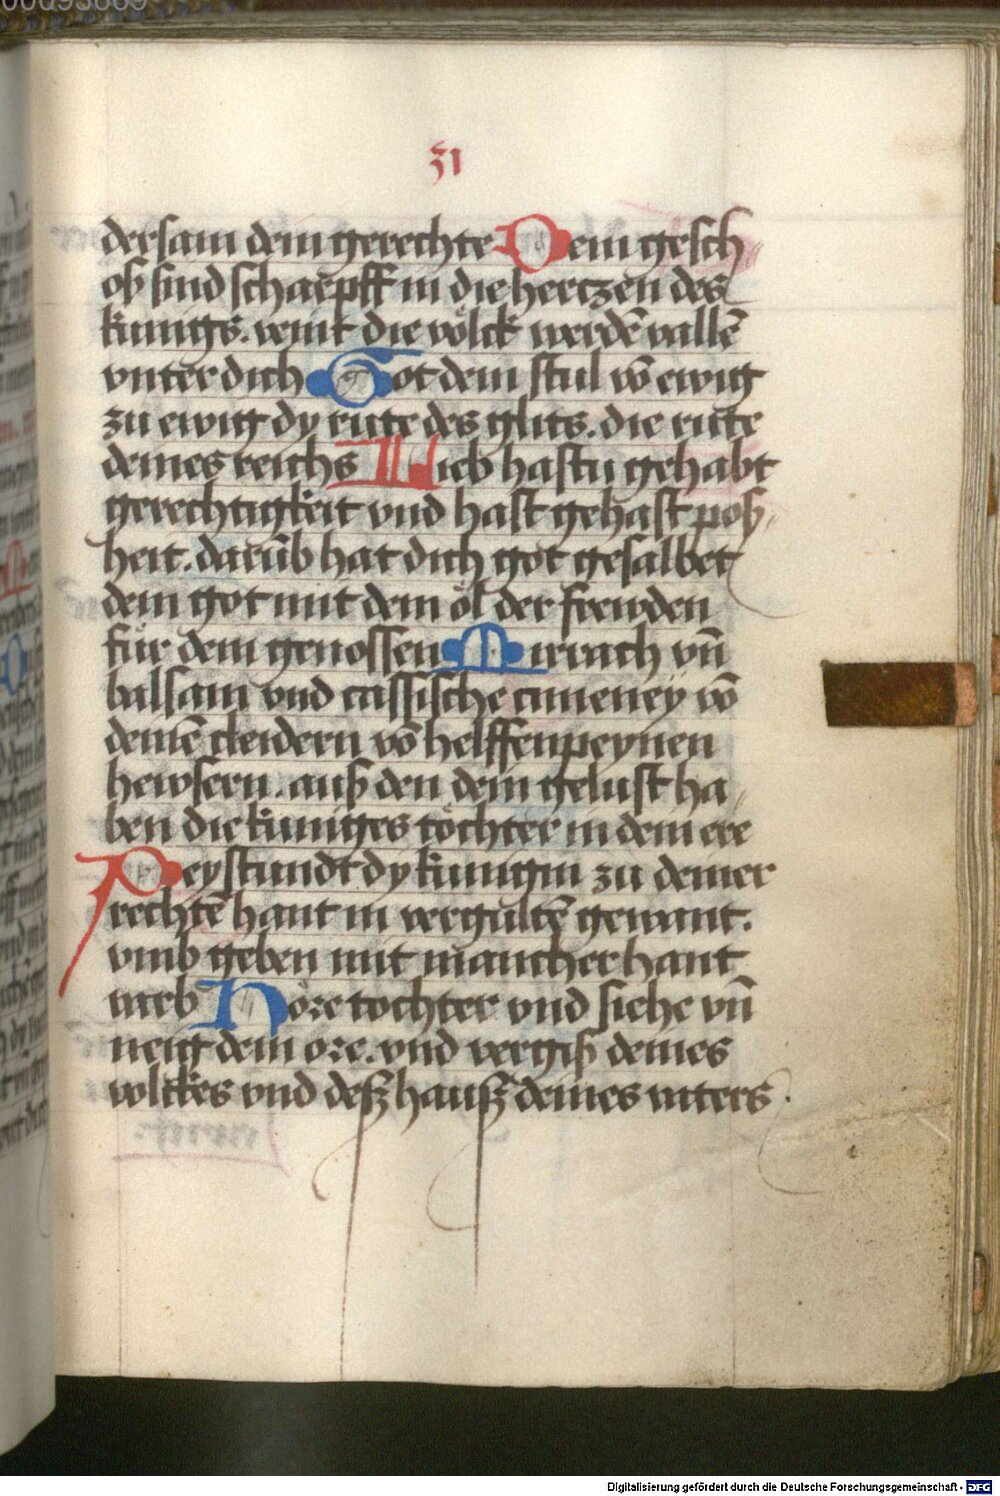 31
dersam dein gerechte Dein gesch
oß sind schaerpff in die hertzen des
kunigs. wint die völck werdē vallē
vnter dich Got dein stul vō ewig
zu ewig dy rute des glits. die rute
deines reichs Lieb hastu gehabt
gerechtigkeit vnd hast gehast poß
heit. darūb hat dich got gesalbet
dein got mit dem öl der frewden
für dein genossen Mirrach vn̄
balsam vnd cassische cimeney vō
deinē cleidern vō helffenpeynen
hewsern. auß den dein gelust ha
ben die kuniges töchter in dein ere
Peystundt dy kunigin zu deiner
rechtē hant in vergultē gewant.
vmb geben mit mancher hant
web Höre tochter vnd siehe vn̄
neig dein ore. vnd vergiß deines
volckes vnd deß hauß deines vaters
Digitalisierung gefördert durch die Deutsche Forschungsgemeinschaft - DFG